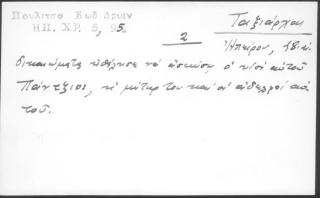 Πουλιτσα Κωδ Δρυιν
ΗΠ. ΧΡ. 5, 95.
Ταξιάρχαι
2
Ἠπείρου, 18
δικαιώματι ἠθέλησε νὰ ἀσκήσῃ ὁ υἱός αὐτοῦ
Πάντζιος, κὶ μήτηρ του καὶ οἱ ἀδελφοί αὐ
τοῦ.